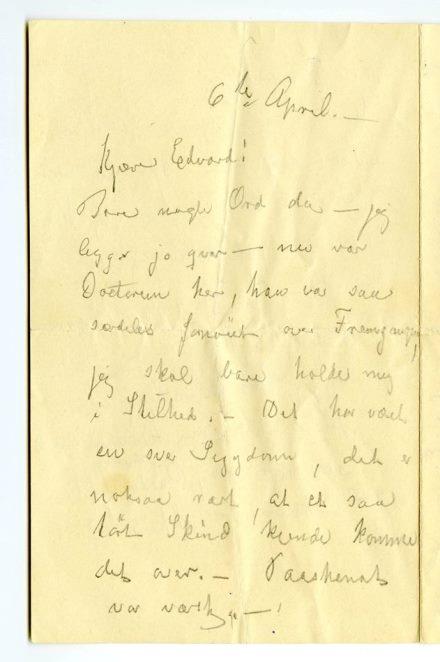 6te April. —
Kjære Edvard!
Bare nogle Ord da — jeg
ligger jo  — nu var
Doctoren her, han var saa
særdeles fornöiet over Fremgangen,
jeg skal bare holde mig
i Stilhed. — Det har været
en svær Sygdom, det er
noksaa rart, at et saa
tört Skind kunde komme
det over. — Paaskenat
var værst, — !